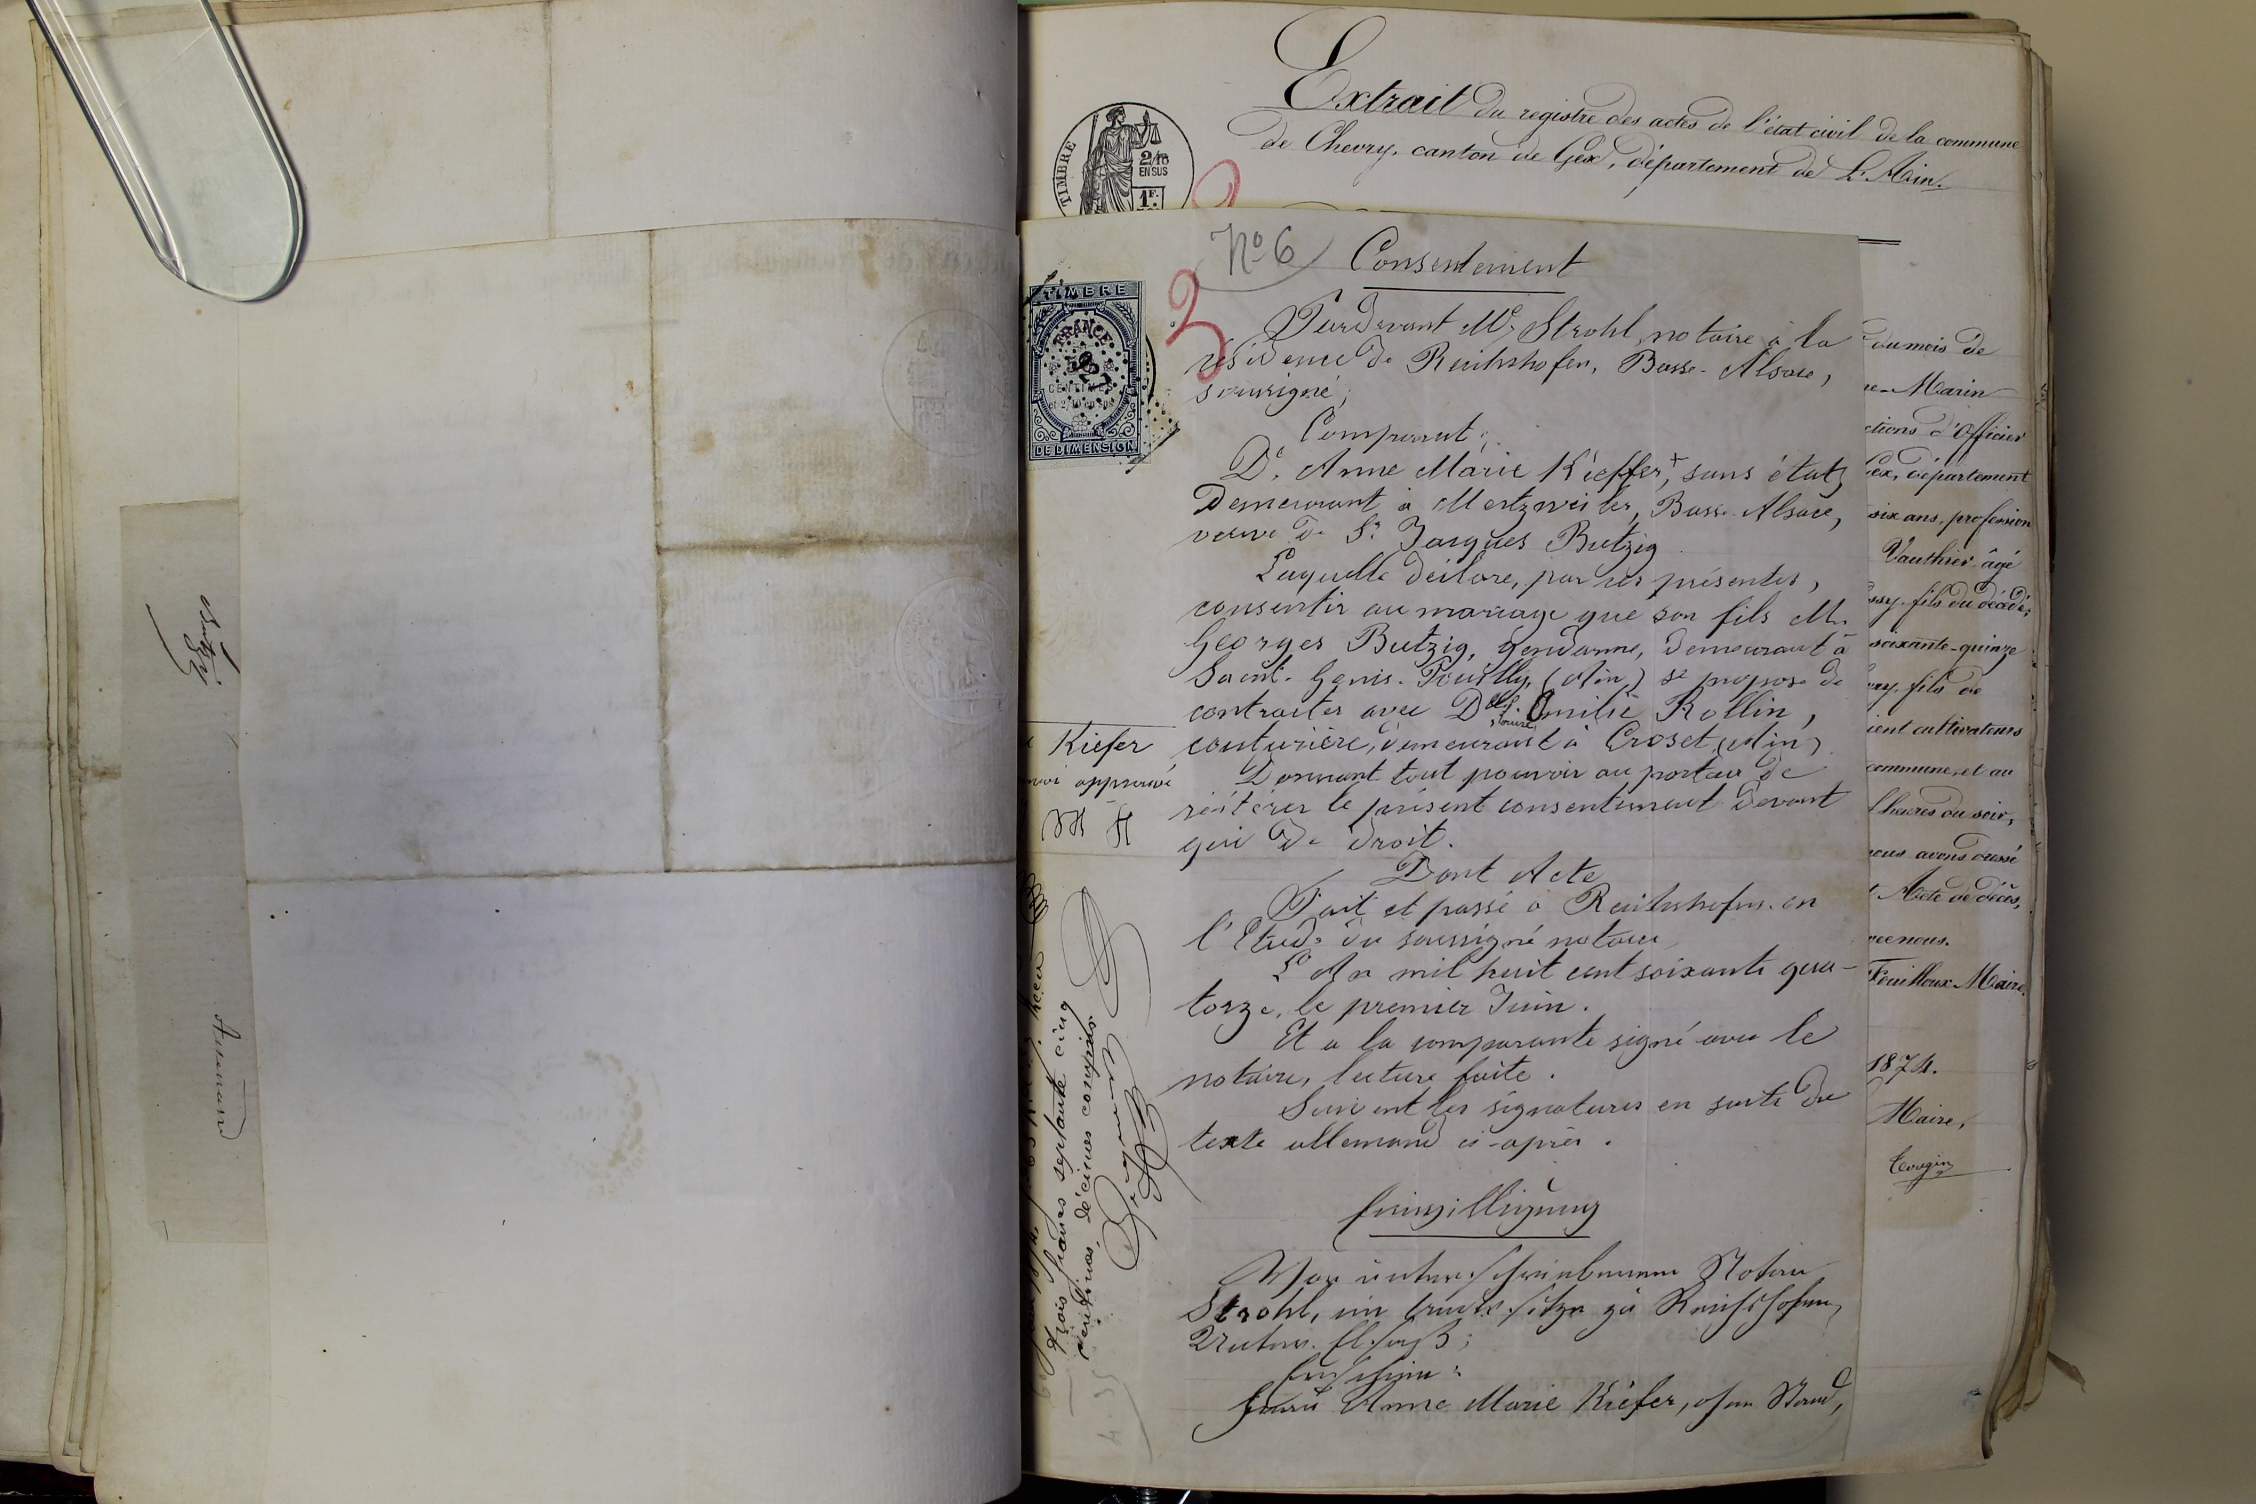 Extrait du registre des actes de l'état civil de la commune
de Chevry, canton de Gex, département de L'Ain.
TIMBRE
2/10
EN SUS
1F.
No 6
Consentement
TIMBRE
FRANCE
DE DIMENSION
Pardevant Me Strohl, notaire à la
résidence de Reichshofen, Basse-Alsace,
soussigné,
Comparut:
De Anne Marie Kieffer+, sans état,
demeurant à Mertzweiler, Basse-Alsace,
veuve de Sr Jacques Butzig
Laquelle déclare, par ces présentes,
consentir au mariage que son fils Mr
Georges Butzig, gendarme, demeurant à
Saint-Genis-Pouilly, (Ain) se propose de
contracter avec Delle Louise Emilie Rollin,
couturière, demeurant à Croset, (Ain)
Donnant tout pouvoir au porteur de
réitérer le présent consentement devant
qui de droit.
Dont Acte
Fait et passé à Reichshofen en
l'Etude du soussigné notaire
L'An mil huit cent soixante qua-
torze, le premier Juin.
Et a la comparante signé avec le
notaire, lecture faite.
Suivent les signatures en suite du
texte allemand ci-après.
Einwilligung
Vor unterschriebenem Notar
Strohl, im Amtssitze zu Reichshofen,
Unter-Elsaß;
Erschien:
Frau Anne Marie Kiefer, ohne Stand,
Kiefer
approuvé
trois francs septante cinq
centimes, décimes compris
du mois de
ne-Marin
ctions d'Officier
Gex, département
six ans, profession
Vauthier âgé
ssy, fils du décédé;
soixante-quinze
vry, fils de
ient cultivateurs
commune, et au
heures du soir,
nous avons dressé
Acte de décès,
vec nous.
Feuilloux Maire.
1874.
Maire,
Butzig